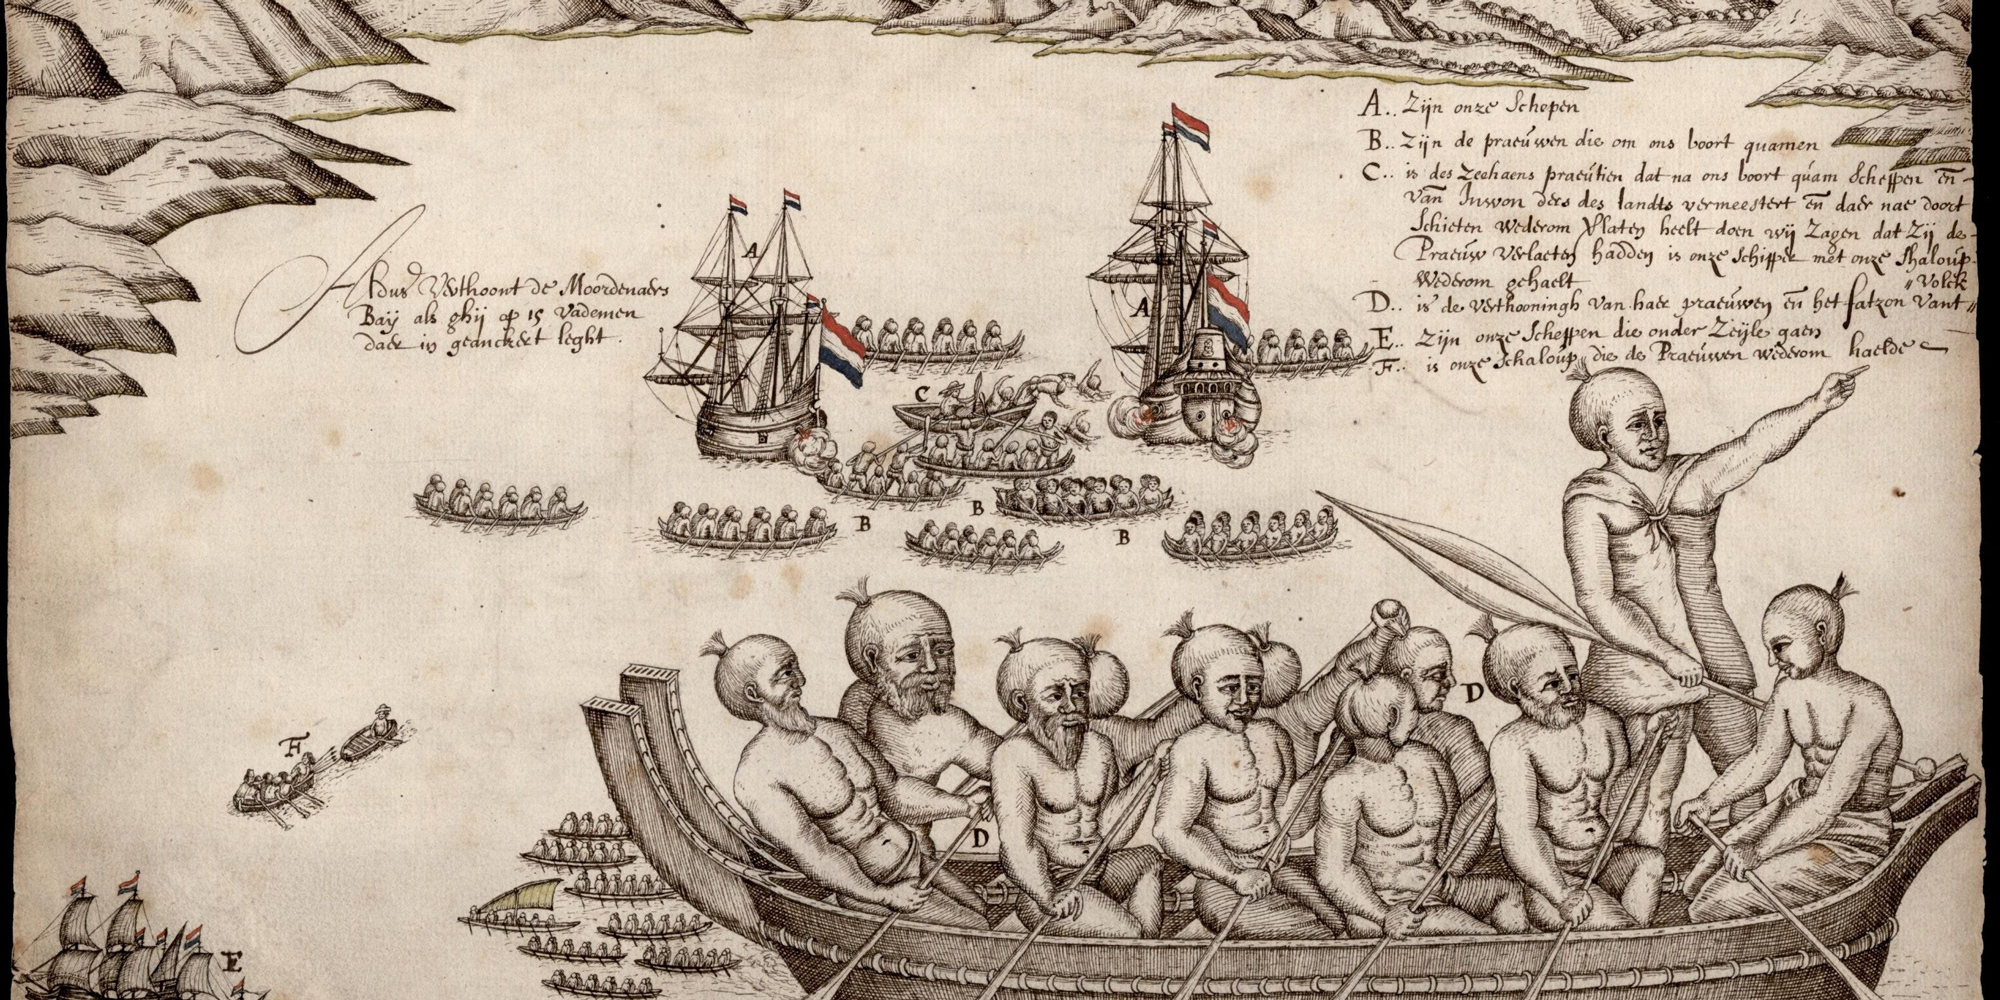 A.. Zijn onze Schepen
B.. Zijn de praeúwen die om ons boort quamen
C.. is des Zeehaens praeútien dat na ons boort quam Scheppen en
van Inwon ders des landts vermeestert en daer nae doort
Schieten wederom Vlaten heeft doen wij Zagen dat Zij de
Praeuw verlaeten hadden is onze Schipper met onze Shaloup
Wederom gehaelt
D.. is de verthooningh van haer praeuwen en het fatzon vant
Volck
E.. Zijn onze Scheppen die onder Zeijle gaen
F.. is onze Schaloup die de Praeuwen wederom haelde
Aldus Verthoont de Moordenaers
Baij als ghij op 15 Vademen
daer in geanckert leght.
A
A
C
B
B
B
D
D
F
E